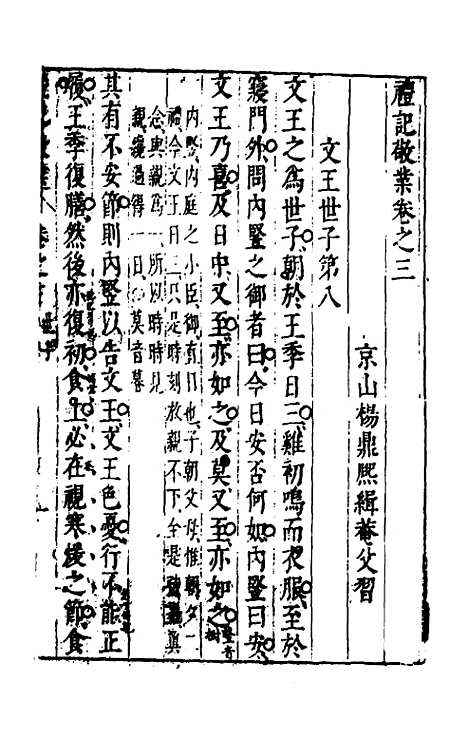 禮記敬業卷之三
京山楊鼎熙緝菴父習
文王世子第八
文王之為世子朝於王季日三雞初鳴而衣服至於
寢門外問內豎之御者曰今日安否何如內豎曰安
文王乃喜及日中又至亦如之及莫又至亦如之
豎音樹
內豎內庭之小臣御直日也子朝父母惟朝夕二
禮今文王日三只是時刻放親不下全是
念與親為一所以時時見
親
莫音暮
其有不安節則內豎以告文王文王色憂行不能正
履王季復膳然後亦復初食上必在視寒煖之節食